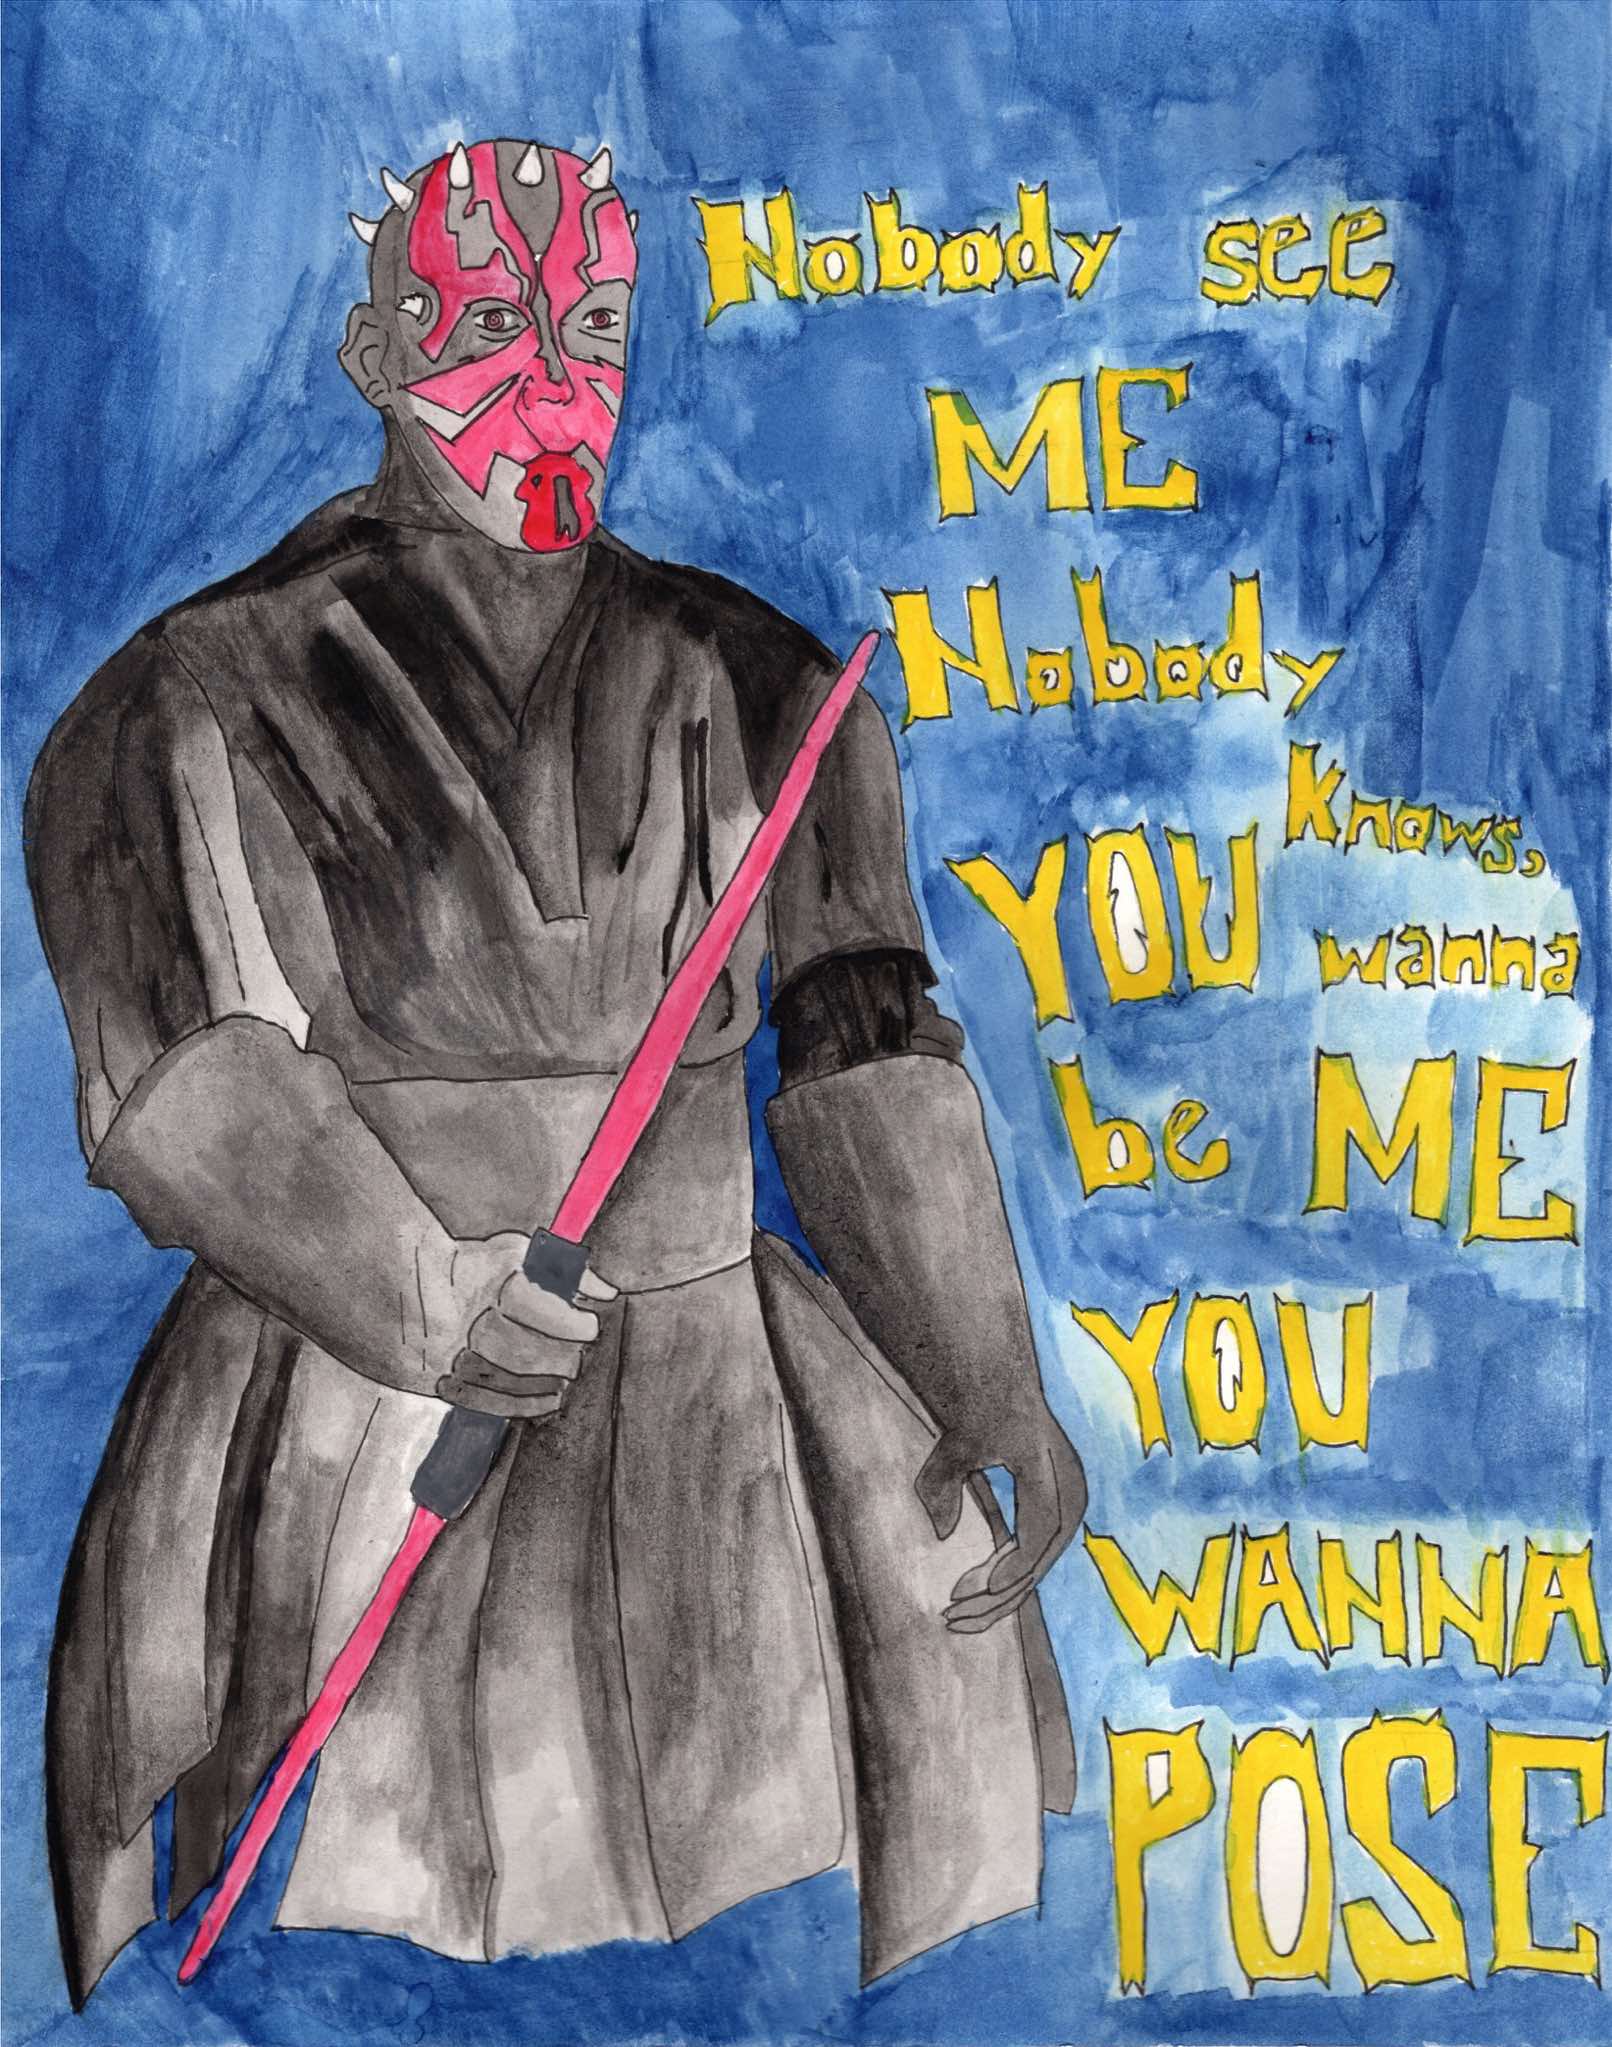 Nobody see
ME
Nobody
knows,
YOU wanna
be ME
YOU
WANNA
POSE